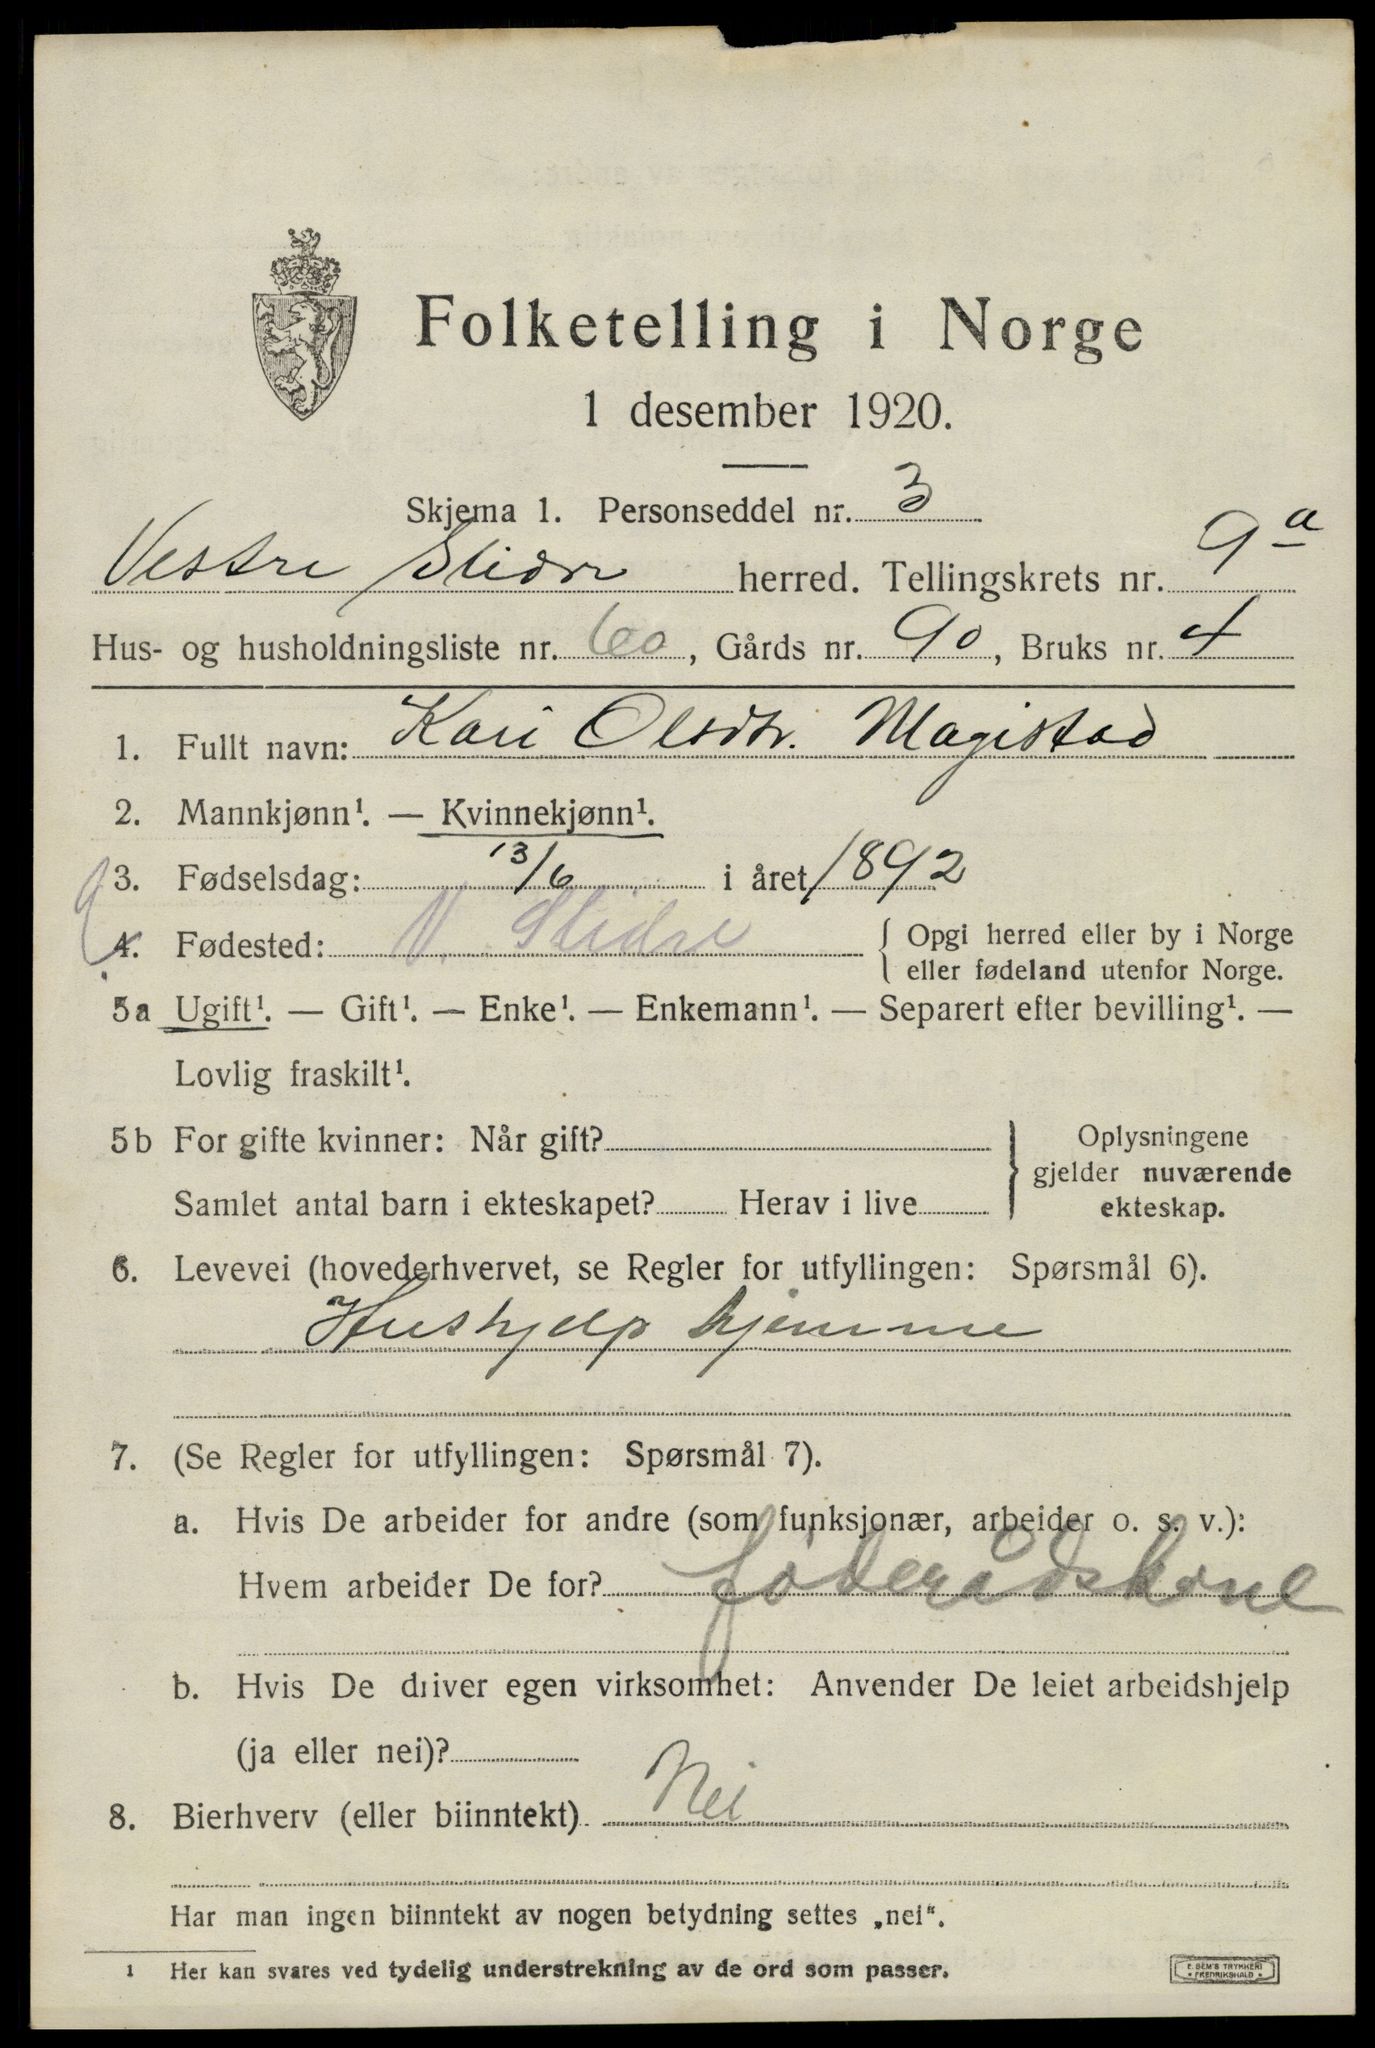 Folketelling i Norge
1 desember 1920.
Skjema 1. Personseddel nr. 3
Vestre Slidre herred. Tellingskrets nr. 9a
Hus- og husholdningsliste nr. 60, Gårds nr. 90, Bruks nr. 4
1. Fullt navn: Kari Olsdtr. Magistad
2. Mannkjønn¹. — Kvinnekjønn¹.
3. Fødselsdag: 13/6 i året 1892
4. Fødested: V. Slidre { Opgi herred eller by i Norge
eller fødeland utenfor Norge.
5a Ugift¹. — Gift¹. — Enke¹. — Enkemann¹. — Separert efter bevilling¹. —
Lovlig fraskilt¹.
5b For gifte kvinner: Når gift?
Samlet antal barn i ekteskapet? Herav i live
} Oplysningene
gjelder nuværende
ekteskap.
6. Levevei (hovederhvervet, se Regler for utfyllingen: Spørsmål 6).
Hushjelp hjemme
7. (Se Regler for utfyllingen: Spørsmål 7).
a. Hvis De arbeider for andre (som funksjonær, arbeider o. s. v.):
Hvem arbeider De for? føderådskone
b. Hvis De driver egen virksomhet: Anvender De leiet arbeidshjelp
(ja eller nei)?
8. Bierhverv (eller biinntekt) Nei
Har man ingen biinntekt av nogen betydning settes „nei“.
1 Her kan svares ved tydelig understrekning av de ord som passer.
E. SEM'S TRYKKERI
• FREDRIKSHALD •